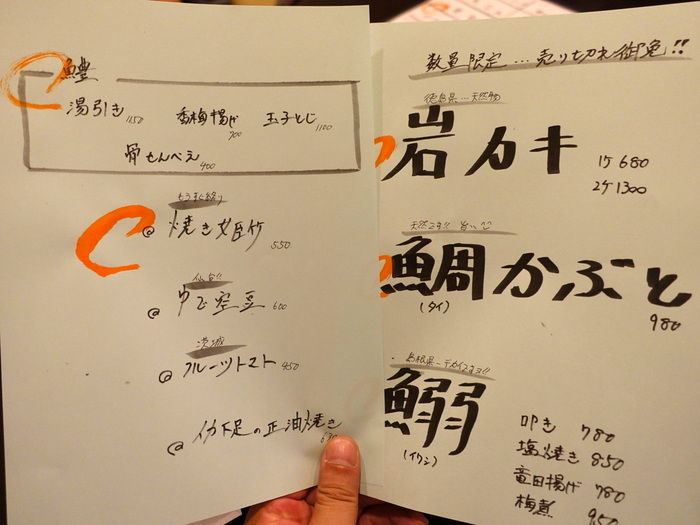 鱧
湯引き 1150 香梅揚げ 900 玉子とじ 1100
骨せんべえ 400
もうすぐ終り
@ 焼き姫竹 550
仙台!!
@ ゆで空豆 600
茨城
@ フルーツトマト 450
@ イカ下足の正油焼き
数量限定…売り切れ御免!!
徳島県…天然物
岩カキ 1ケ 680
2ケ 1300
天然です!! 旨い
鯛かぶと
(タイ) 980
島根県…デカイですヨ!!
鰯
(イワシ)
叩き 780
塩焼き 850
竜田揚げ 780
梅煮 950